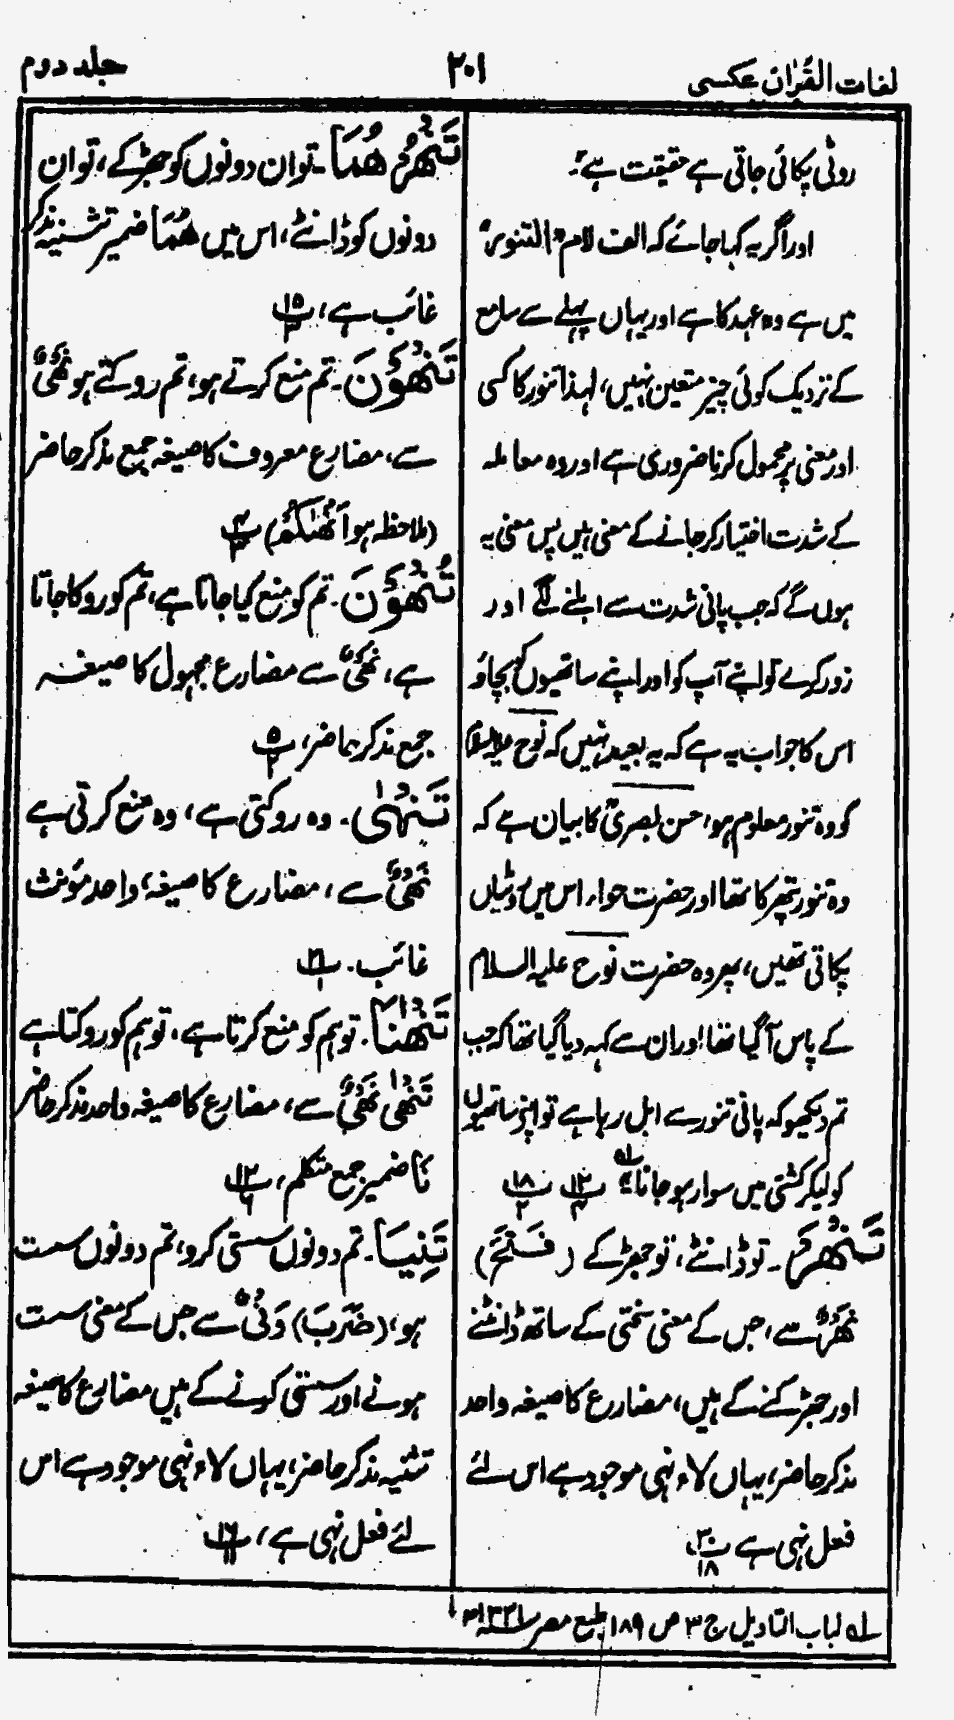 لغات القرآن عکسی
۲۰۱
جلد دوم
روٹی پکائی جاتی ہے حقیقت ہے۔
اور اگر یہ کہا جائے کہ الف لام "التنور"
میں ہے وہ عہد کا ہے اور یہاں پہلے سے سامع
کے نزدیک کوئی چیز متعین نہیں، لہذا تنور کا کسی
اور معنی پر محمول کرنا ضروری ہے اور وہ معاملہ
کے شدت اختیار کر جانے کے معنی ہیں پس معنی یہ
ہوں گے کہ جب پانی شدت سے ابلنے لگے اور
زور کرے تو اپنے آپ کو اور اپنے ساتھیوں کو بچاؤ
اس کا جواب یہ ہے کہ یہ بعید نہیں کہ نوح علیہ السلام
کو وہ تنور معلوم ہو، حسن بصریؒ کا بیان ہے کہ
وہ تنور پتھر کا تھا اور حضرت حواء اس میں روٹیاں
پکاتی تھیں، پھر وہ حضرت نوح علیہ السلام
کے پاس آگیا تھا اور ان سے کہہ دیا گیا تھا کہ جب
تم دیکھو کہ پانی تنور سے ابل رہا ہے تو اپنے ساتھیوں
کو لیکر کشتی میں سوار ہو جانا لہ
تَنْهَرْ۔ تو ڈانٹے، تو جھڑکے (فَتَحَ)
نَهْرٌ سے، جس کے معنی سختی کے ساتھ ڈانٹنے
اور جھڑکنے کے ہیں، مضارع کا صیغہ واحد
مذکر حاضر، یہاں لاء نہی موجود ہے اس لئے
فعل نہی ہے پ ۳۰/۱۸
تَنْهَرْهُمَا۔ تو ان دونوں کو جھڑکے، تو ان
دونوں کو ڈانٹے، اس میں هُمَا ضمیر تثنیہ مذکر
غائب ہے، پ ۱۵/۳
تَنْهَوْنَ۔ تم منع کرتے ہو، تم روکتے ہو نَهْيٌ
سے، مضارع معروف کا صیغہ جمع مذکر حاضر
(ملاحظہ ہو اَنْهٰىكُمْ)
تُنْهَوْنَ۔ تم کو منع کیا جاتا ہے، تم کو روکا جاتا
ہے، نَهْيٌ سے مضارع مجہول کا صیغہ
جمع مذکر حاضر، پ ۵/۲
تَنْهٰى۔ وہ روکتی ہے، وہ منع کرتی ہے
نَهْيٌ سے، مضارع کا صیغہ، واحد مؤنث
غائب۔ پ ۲۱/۱
تَنْهٰنَا۔ تو ہم کو منع کرتا ہے، تو ہم کو روکتا ہے
تَنْهٰى نَهْيٌ سے، مضارع کا صیغہ واحد مذکر حاضر
نَا ضمیر جمع متکلم، پ ۱۲/۶
تَنِيَا۔ تم دونوں سستی کرو، تم دونوں سست
ہو، (ضَرَبَ) وَنْیٌ سے جس کے معنی سست
ہونے اور سستی کرنے کے ہیں مضارع کا صیغہ
تثنیہ مذکر حاضر، یہاں لاء نہی موجود ہے اس
لئے فعل نہی ہے، پ ۱۶/۱۱
لہ لباب التاویل ج ۳ ص ۱۸۹ طبع مصر ۱۳۳۱ھ